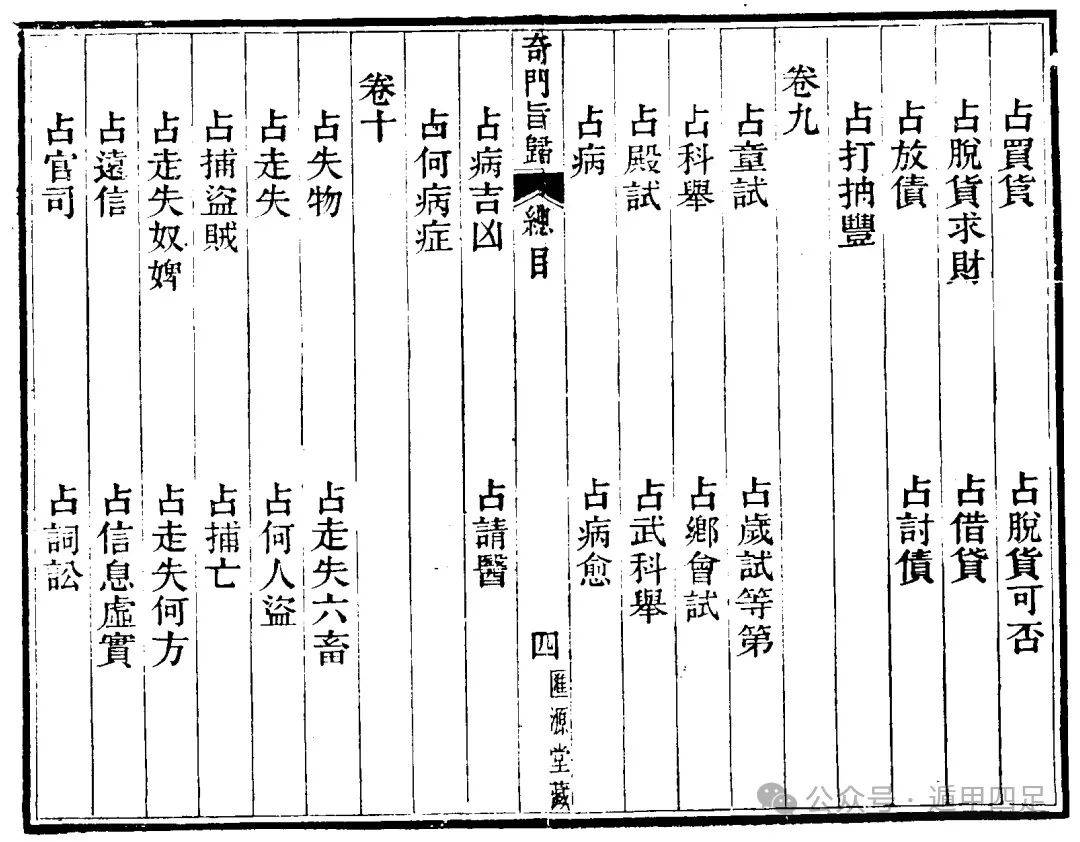 占買貨　占脫貨可否
占脫貨求財　占借貸
占放債　占討債
占打抽豐
卷九
占童試　占歲試等第
占科舉　占鄉會試
占殿試　占武科舉
占病　占病愈
奇門旨歸　總目　四　匯源堂藏
占病吉凶　占請醫
占何病症
卷十
占失物　占走失六畜
占走失　占何人盜
占捕盜賊　占捕亡
占走失奴婢　占走失何方
占遠信　占信息虛實
占官司　占詞訟
公众号·遁甲四足